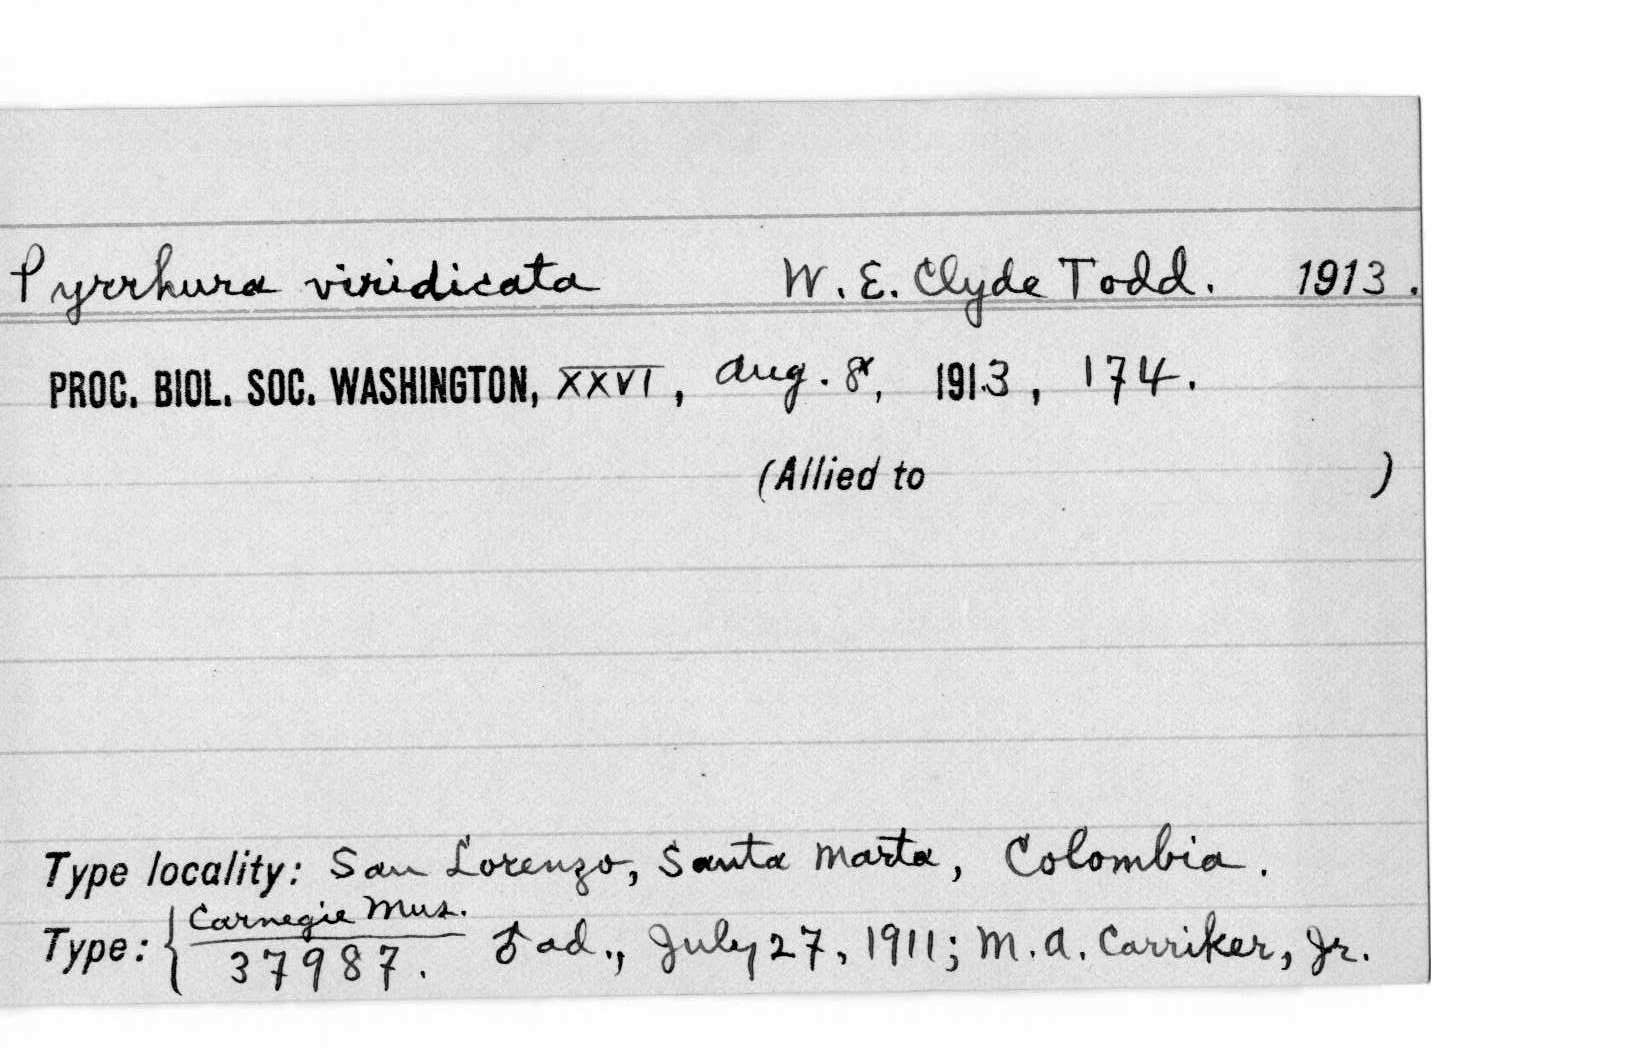 Pyrrhura viridicata W. E. Clyde Todd. 1913.
PROC. BIOL. SOC. WASHINGTON, XXVI, Aug. 8, 1913, 174.
(Allied to )
Type locality: San Lorenzo, Santa Marta, Colombia.
Type: { Carnegie Mus.
37987. ♂ ad., July 27, 1911; M. A. Carriker, Jr.